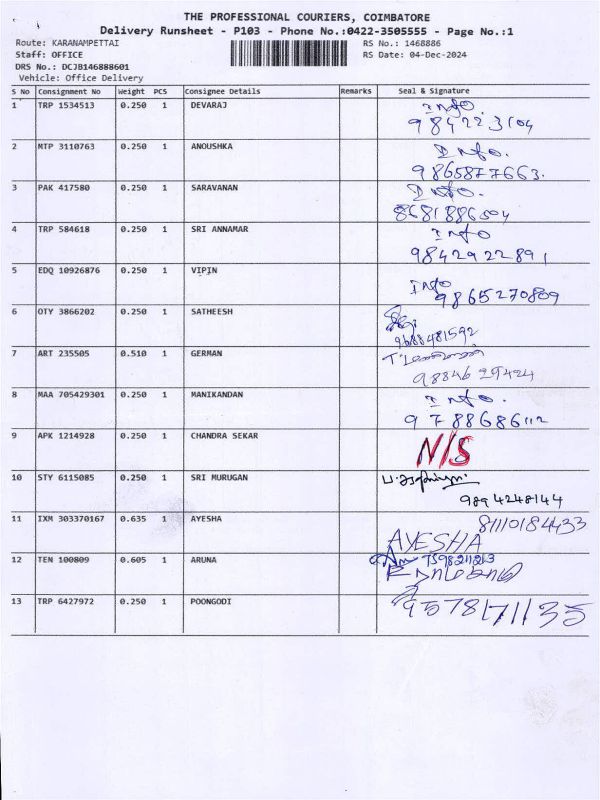 THE PROFESSIONAL COURIERS, COIMBATORE
Delivery Runsheet - P103 - Phone No.:0422-3505555 - Page No.:1
Route: KARANAMPETTAI RS No.: 1468886
Staff: OFFICE RS Date: 04-Dec-2024
DRS No.: DCJB146888601
Vehicle: Office Delivery
S No Consignment No Weight PCS Consignee Details Remarks Seal & Signature
1 TRP 1534513 0.250 1 DEVARAJ Info
984223104
2 MTP 3110763 0.250 1 ANOUSHKA Info.
9865877663.
3 PAK 417580 0.250 1 SARAVANAN Info.
8681886504
4 TRP 584618 0.250 1 SRI ANNAMAR Info
9842922891
5 EDQ 10926876 0.250 1 VIPIN Info
9865270809
6 OTY 3866202 0.250 1 SATHEESH
9688481592
7 ART 235505 0.510 1 GERMAN
9884629424
8 MAA 705429301 0.250 1 MANIKANDAN Info.
9788686112
9 APK 1214928 0.250 1 CHANDRA SEKAR N/S
10 STY 6115085 0.250 1 SRI MURUGAN
9894248144
11 IXM 303370167 0.635 1 AYESHA 8110184433
AYESHA
12 TEN 100809 0.605 1 ARUNA 7598211213
13 TRP 6427972 0.250 1 POONGODI 9578171135